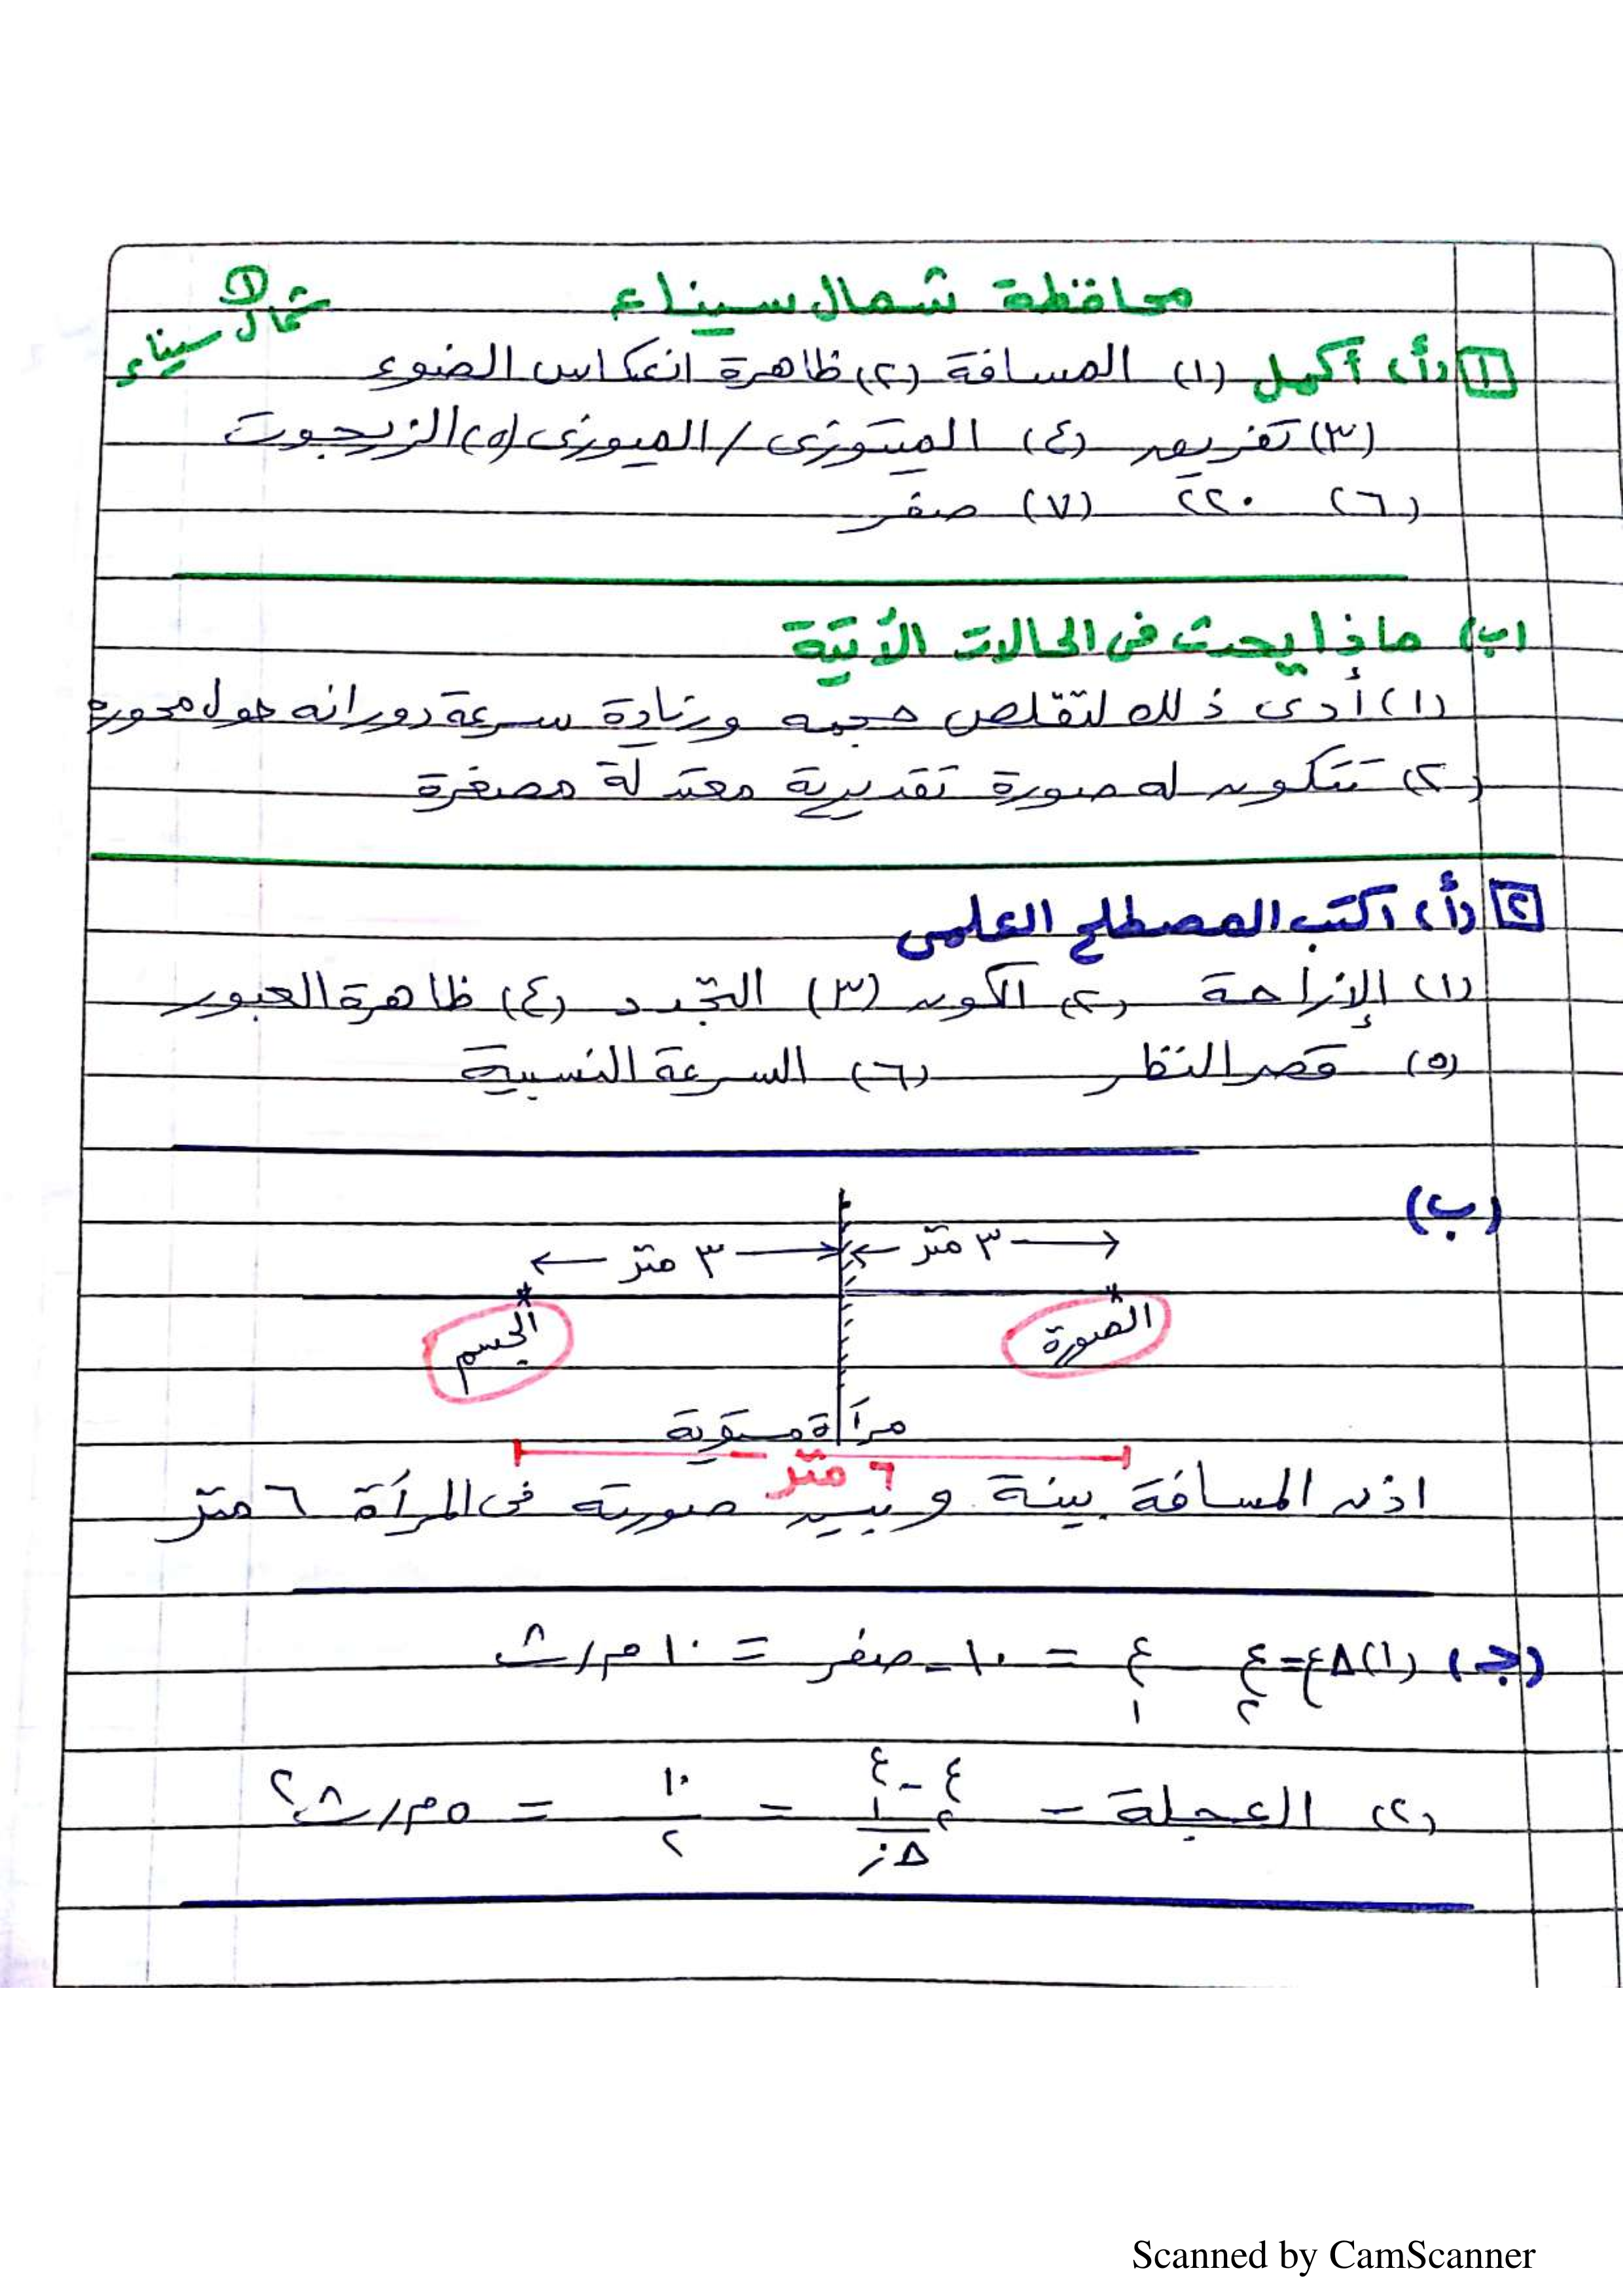 محافظة شمال سيناء
① شمال سيناء
١ (أ) أكمل (١) المسافة (٢) ظاهرة انعكاس الضوء
(٣) تفريغ (٤) الميتوزى / الميوزى (٥) الزيجوت
(٦) ٢٢٠ (٧) صفر
(ب) ماذا يحدث فى الحالات الأتية
(١) أدى ذلك لتقلص حجمه وزيادة سرعة دورانه حول محوره
(٢) تتكون له صورة تقديرية معتدلة مصغرة
٢ (أ) اكتب المصطلح العلمى
(١) الإزاحة (٢) الكون (٣) التجدد (٤) ظاهرة العبور
(٥) قصر النظر (٦) السرعة النسبية
(ب)
٣ متر ٣ متر
الصورة الجسم
مرآة مستوية
٦ متر
اذن المسافة بينة و بين صورته فى المرآة ٦ متر
(جـ) (١) Δع = ع٢ - ع١ = ١٠ - صفر = ١٠ م/ث
(٢) العجلة = ع٢ - ع١ / Δز = ١٠ / ٢ = ٥ م/ث٢
Scanned by CamScanner